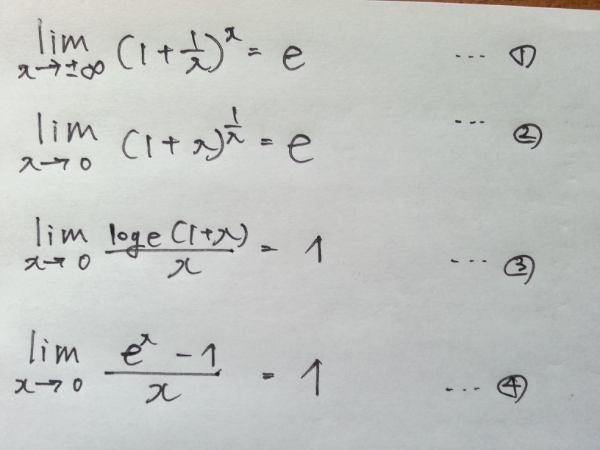 lim x→±∞ (1+1/x)^x = e ... ①
lim x→0 (1+x)^(1/x) = e ... ②
lim x→0 loge(1+x)/x = 1 ... ③
lim x→0 (e^x-1)/x = 1 ... ④